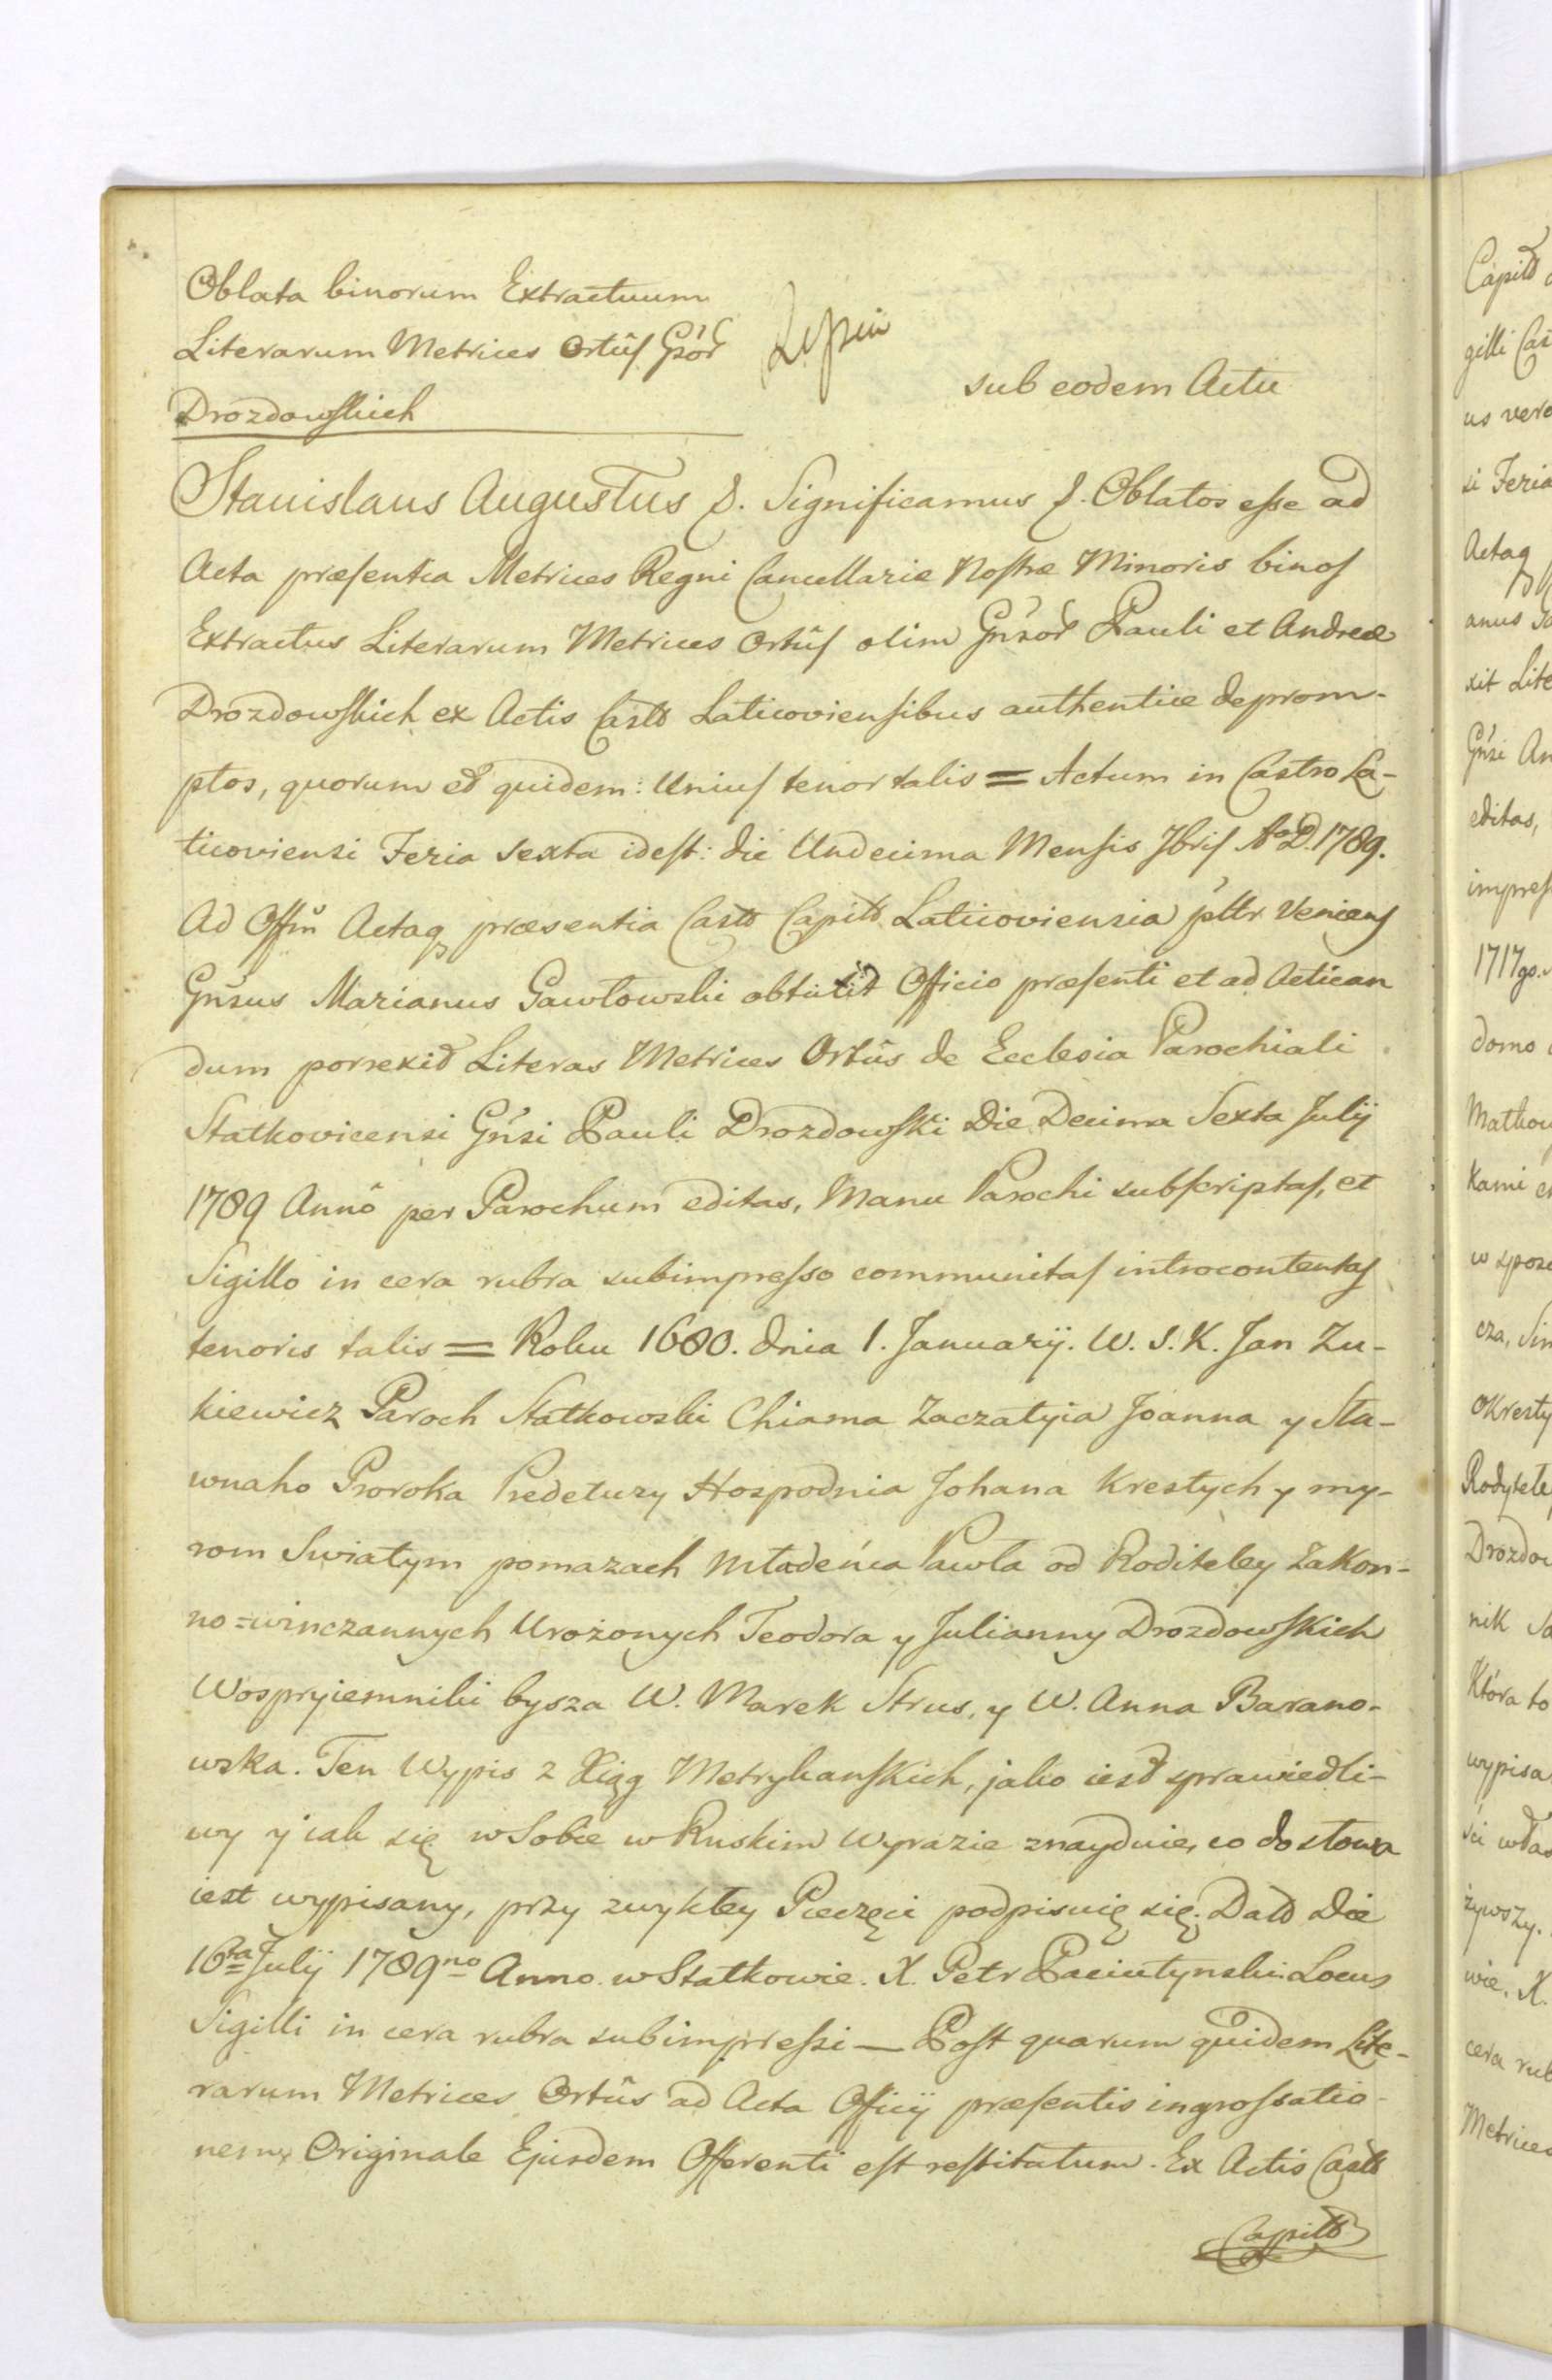 Oblata binorum Extractuum
Literarum Metrices Ortûs Gñor
Drozdowskich
sub eodem Actu
Stanislaus Augustus &. Significamus &. Oblatos esse ad
Acta præsentia Metrices Regni Cancellariæ Nostræ Minoris binos
Extractus Literarum Metrices Ortûs olim Gñsor Pauli et Andreæ
Drozdowskich ex Actis Castr Laticoviensibus authentice deprom-
ptos, quorum et quidem: Unius tenor talis = Actum in Castro La-
ticoviensi Feria sexta idest: die Undecima Mensis Xbris Ao D. 1789.
Ad Offm Actaq præsentia Castr Capitl Laticoviensia pltr Veniens
Gñsus Marianus Gawłowski obtulit Officio præsenti et ad Actican
dum porrexit Literas Metrices Ortûs de Ecclesia Parochiali
Statkovicensi Gñsi Pauli Drozdowski Die Decima Sexta Julij
1789 Annô per Parochum editas, Manu Parochi subscriptas, et
Sigillo in cera rubra subimpresso communitas introcontentas
tenoris talis = Roku 1680. dnia 1. Januarij. W. S. X. Jan Zu-
kiewicz Paroch Statkowski Chiama Zaczatyia Joanna y Sła-
wnaho Proroka Predetuzy Hospodnia Johana Krestych y my-
rom Swiatym pomazach Mładeńca Pawła od Roditeley Zakon-
no=winczannych Urożonych Teodora y Julianny Drozdowskich
Wospryiemniki bysza W. Marek Strus, y W. Anna Barano-
wska. Ten Wypis z Xiąg Metrykanskich, jako iest sprawiedli-
wy y iak się w Sobie w Ruskim Wyrazie znayduie, co do słowa
iest wypisany, przy zwykłey Pieczęci podpisuię się. Datt Die
16ta Julij 1789no Anno w Statkowie. X. Petr Paciutynski. Locus
Sigilli in cera rubra subimpressi — Post quarum quidem Lite-
rarum Metrices Ortûs ad Acta Officij præsentis ingrossatio-
nem, Originale Ejusdem Offerenti est restitutum. Ex Actis Castr
Capitl
Capitl
gilli Cas
us vero
si Feria
Actaq
anus Ga
xit Lite
Gñsi An
editas,
impres
1717go.
domo
Matkow
Kami
w spos
cza, Sin
okresty
Rodytele
Drozdow
nik
Która to
wypisa
ści włas
żywszy.
wie. X.
cera rub
Metrices